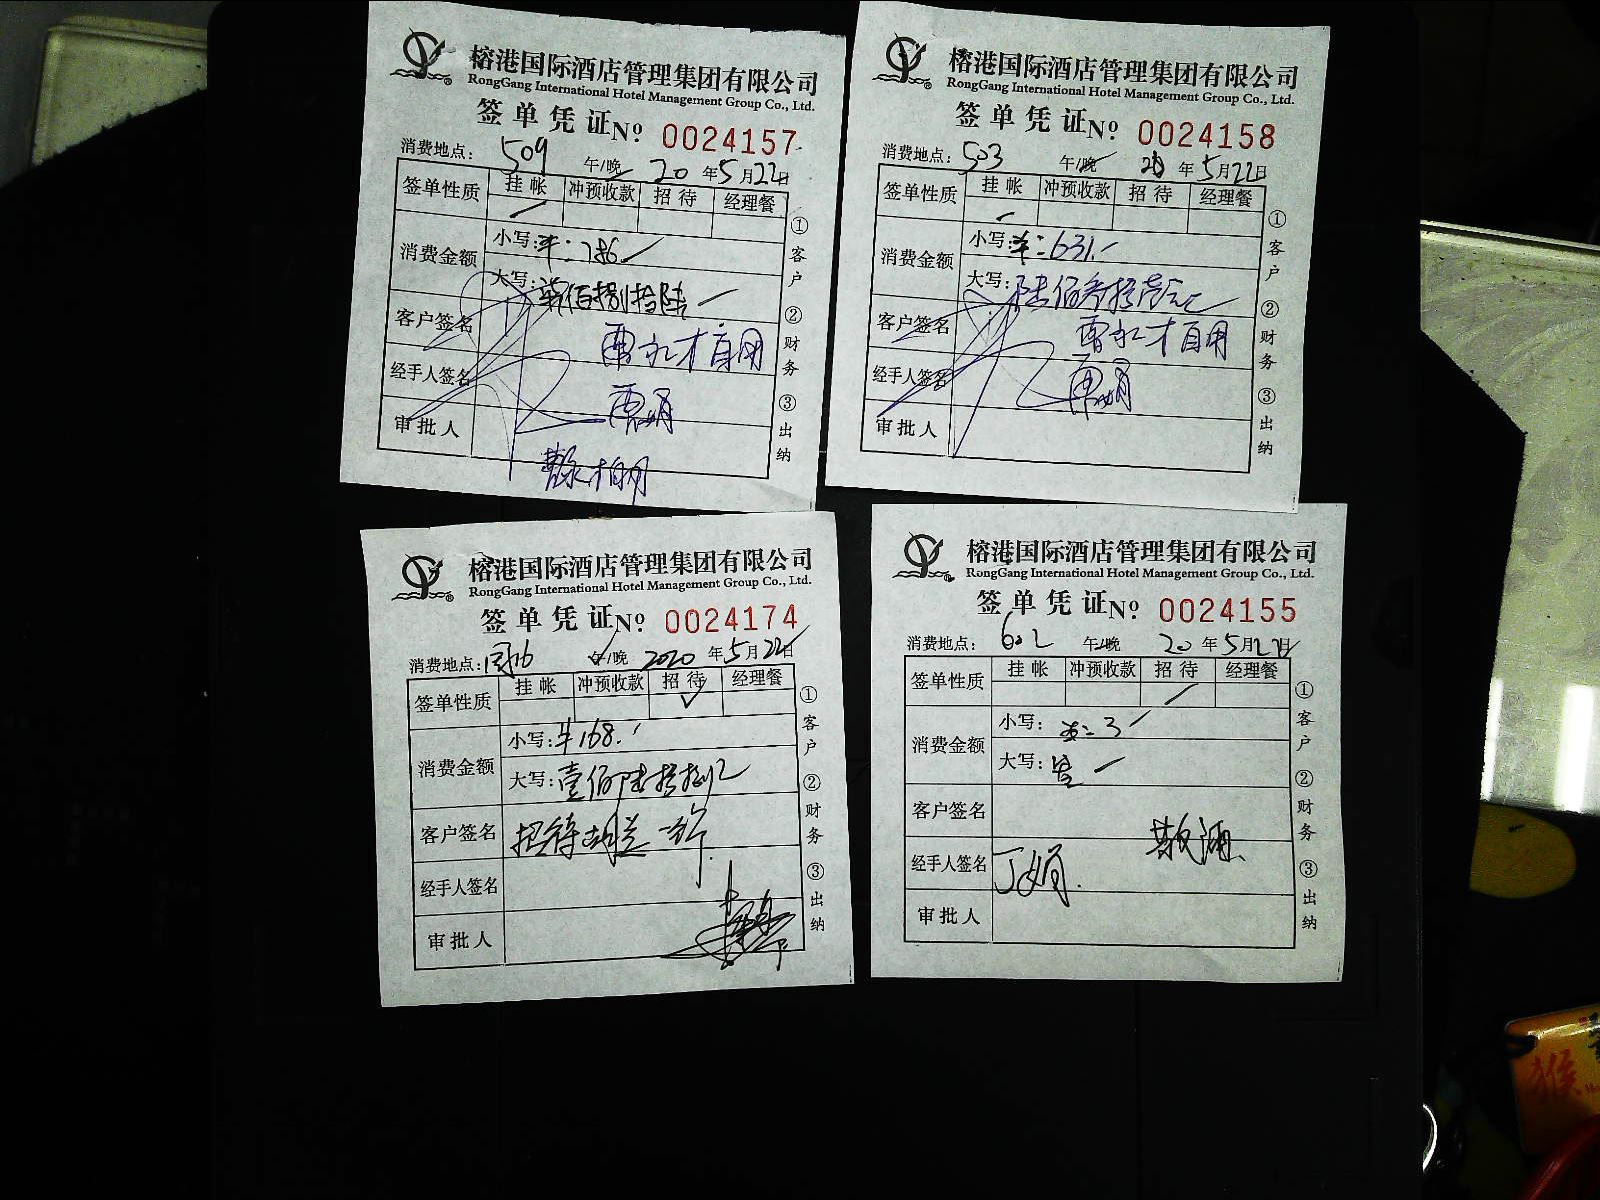 榕港国际酒店管理集团有限公司
RongGang International Hotel Management Group Co., Ltd.
签单凭证 Nº 0024157
消费地点: 509 午/晚 20 年 5 月 22 日
签单性质 挂帐 冲预收款 招待 经理餐
消费金额 小写: 786
大写: 柒佰捌拾陆
客户签名
经手人签名
审批人
① 客户 ② 财务 ③ 出纳
榕港国际酒店管理集团有限公司
RongGang International Hotel Management Group Co., Ltd.
签单凭证 Nº 0024158
消费地点: 503 午/晚 20 年 5 月 22 日
签单性质 挂帐 冲预收款 招待 经理餐
消费金额 小写: 631
大写: 陆佰叁拾壹元
客户签名
经手人签名
审批人
① 客户 ② 财务 ③ 出纳
榕港国际酒店管理集团有限公司
RongGang International Hotel Management Group Co., Ltd.
签单凭证 Nº 0024174
消费地点: 午/晚 2020 年 5 月 22 日
签单性质 挂帐 冲预收款 招待 ✓ 经理餐
消费金额 小写: ¥168.
大写: 壹佰陆拾捌元
客户签名 招待
经手人签名
审批人
① 客户 ② 财务 ③ 出纳
榕港国际酒店管理集团有限公司
RongGang International Hotel Management Group Co., Ltd.
签单凭证 Nº 0024155
消费地点: 602 午/晚 20 年 5 月 22 日
签单性质 挂帐 冲预收款 招待 经理餐
消费金额 小写:
大写:
客户签名
经手人签名
审批人
① 客户 ② 财务 ③ 出纳
猴